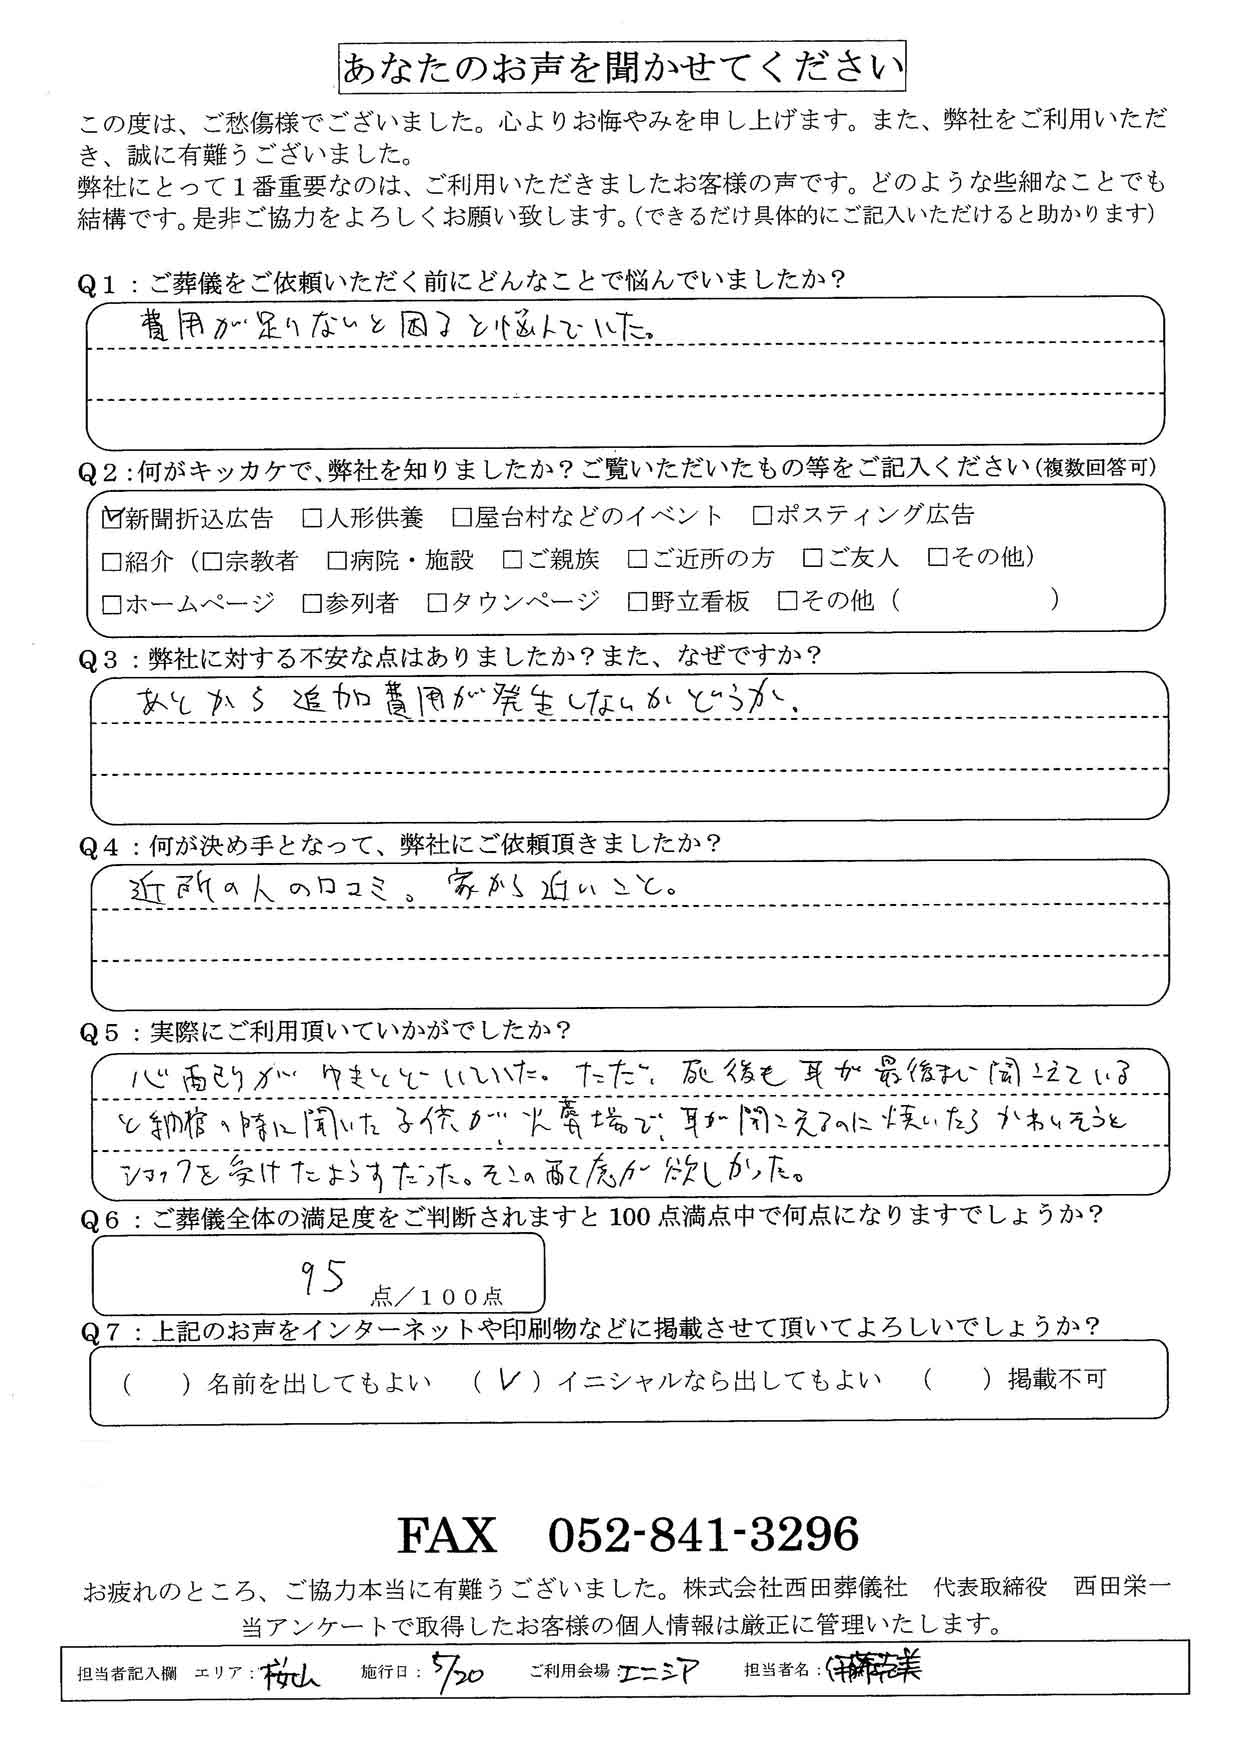 あなたのお声を聞かせてください
この度は、ご愁傷様でございました。心よりお悔やみを申し上げます。また、弊社をご利用いただ
き、誠に有難うございました。
弊社にとって１番重要なのは、ご利用いただきましたお客様の声です。どのような些細なことでも
結構です。是非ご協力をよろしくお願い致します。（できるだけ具体的にご記入いただけると助かります）
Q１：ご葬儀をご依頼いただく前にどんなことで悩んでいましたか？
費用が足りないと困ると悩んでいた。
Q２：何がキッカケで、弊社を知りましたか？ご覧いただいたもの等をご記入ください（複数回答可）
☑新聞折込広告　□人形供養　□屋台村などのイベント　□ポスティング広告
□紹介（□宗教者　□病院・施設　□ご親族　□ご近所の方　□ご友人　□その他）
□ホームページ　□参列者　□タウンページ　□野立看板　□その他（　　　　　　）
Q３：弊社に対する不安な点はありましたか？また、なぜですか？
あとから追加費用が発生しないかどうか。
Q４：何が決め手となって、弊社にご依頼頂きましたか？
近所の人の口コミ。家から近いこと。
Q５：実際にご利用頂いていかがでしたか？
心配りがゆきとどいていた。ただ、死後も耳が最後まで聞こえている
と納棺の時に聞いた子供が、火葬場で、耳が聞こえるのに焼いたらかわいそうと
ショックを受けたようすだった。そこの配慮が欲しかった。
Q６：ご葬儀全体の満足度をご判断されますと 100 点満点中で何点になりますでしょうか？
95 点／１００点
Q７：上記のお声をインターネットや印刷物などに掲載させて頂いてよろしいでしょうか？
（　　）名前を出してもよい　（ ✓ ）イニシャルなら出してもよい　（　　）掲載不可
FAX　052-841-3296
お疲れのところ、ご協力本当に有難うございました。株式会社西田葬儀社　代表取締役　西田栄一
当アンケートで取得したお客様の個人情報は厳正に管理いたします。
担当者記入欄　エリア：桜山　施行日：5/20　ご利用会場：エニシア　担当者名：